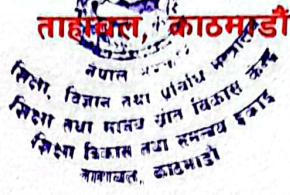 ताहाचल, काठमाडौं
नेपाल
शिक्षा, विज्ञान तथा प्रविधि मन्त्रालय
शिक्षा तथा मानव स्रोत विकास केन्द्र
शिक्षा विकास तथा समन्वय इकाई
काठमाडौं